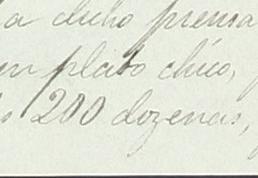 a dicho prensa
un plato chico,
200 dozenas,